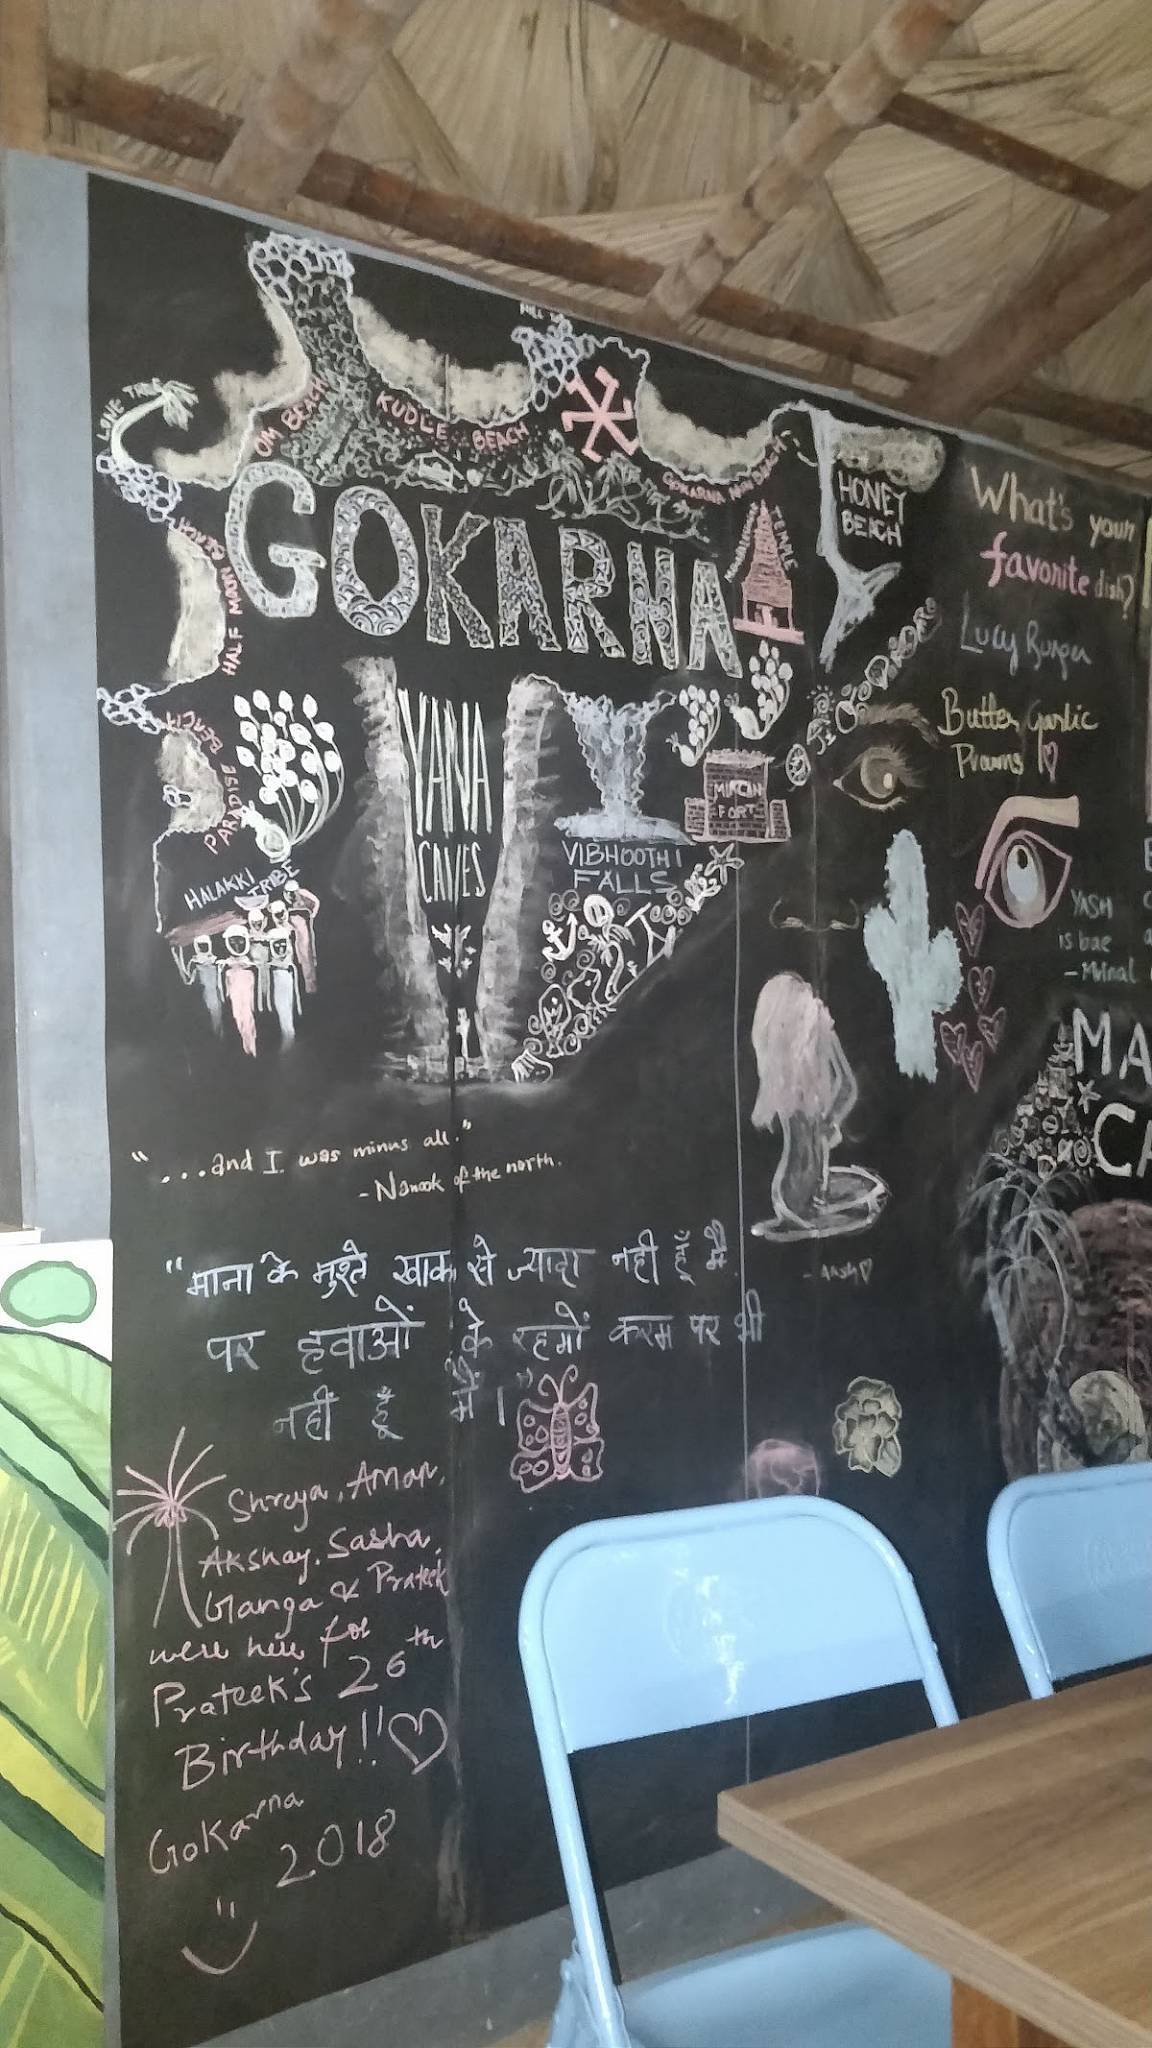 LOVE TREE
OM BEACH
KUDLE BEACH
GOKARNA MAIN BEACH
HONEY
BEACH
HALF MOON BEACH
GOKARNA
TEMPLE
PARADISE BEACH
YANA
CAVES
MIRJAN
FORT
VIBHOOTHI
FALLS
HALAKKI
TRIBE
What's your
favorite dish?
Lucy Burger
Butter Garlic
Prawns
YASH
is bae
- Mrinal
MA
CA
"...and I was minus all."
- Nanook of the north.
"माना के मुश्ते खाक से ज्यादा नही हूँ मै
पर हवाओं के रहमों करम पर भी
नहीं हूँ मैं।"
Shreya, Aman,
Akshay, Sasha,
Ganga & Prateek
were here for
Prateek's 26th
Birthday!!
Gokarna
2018